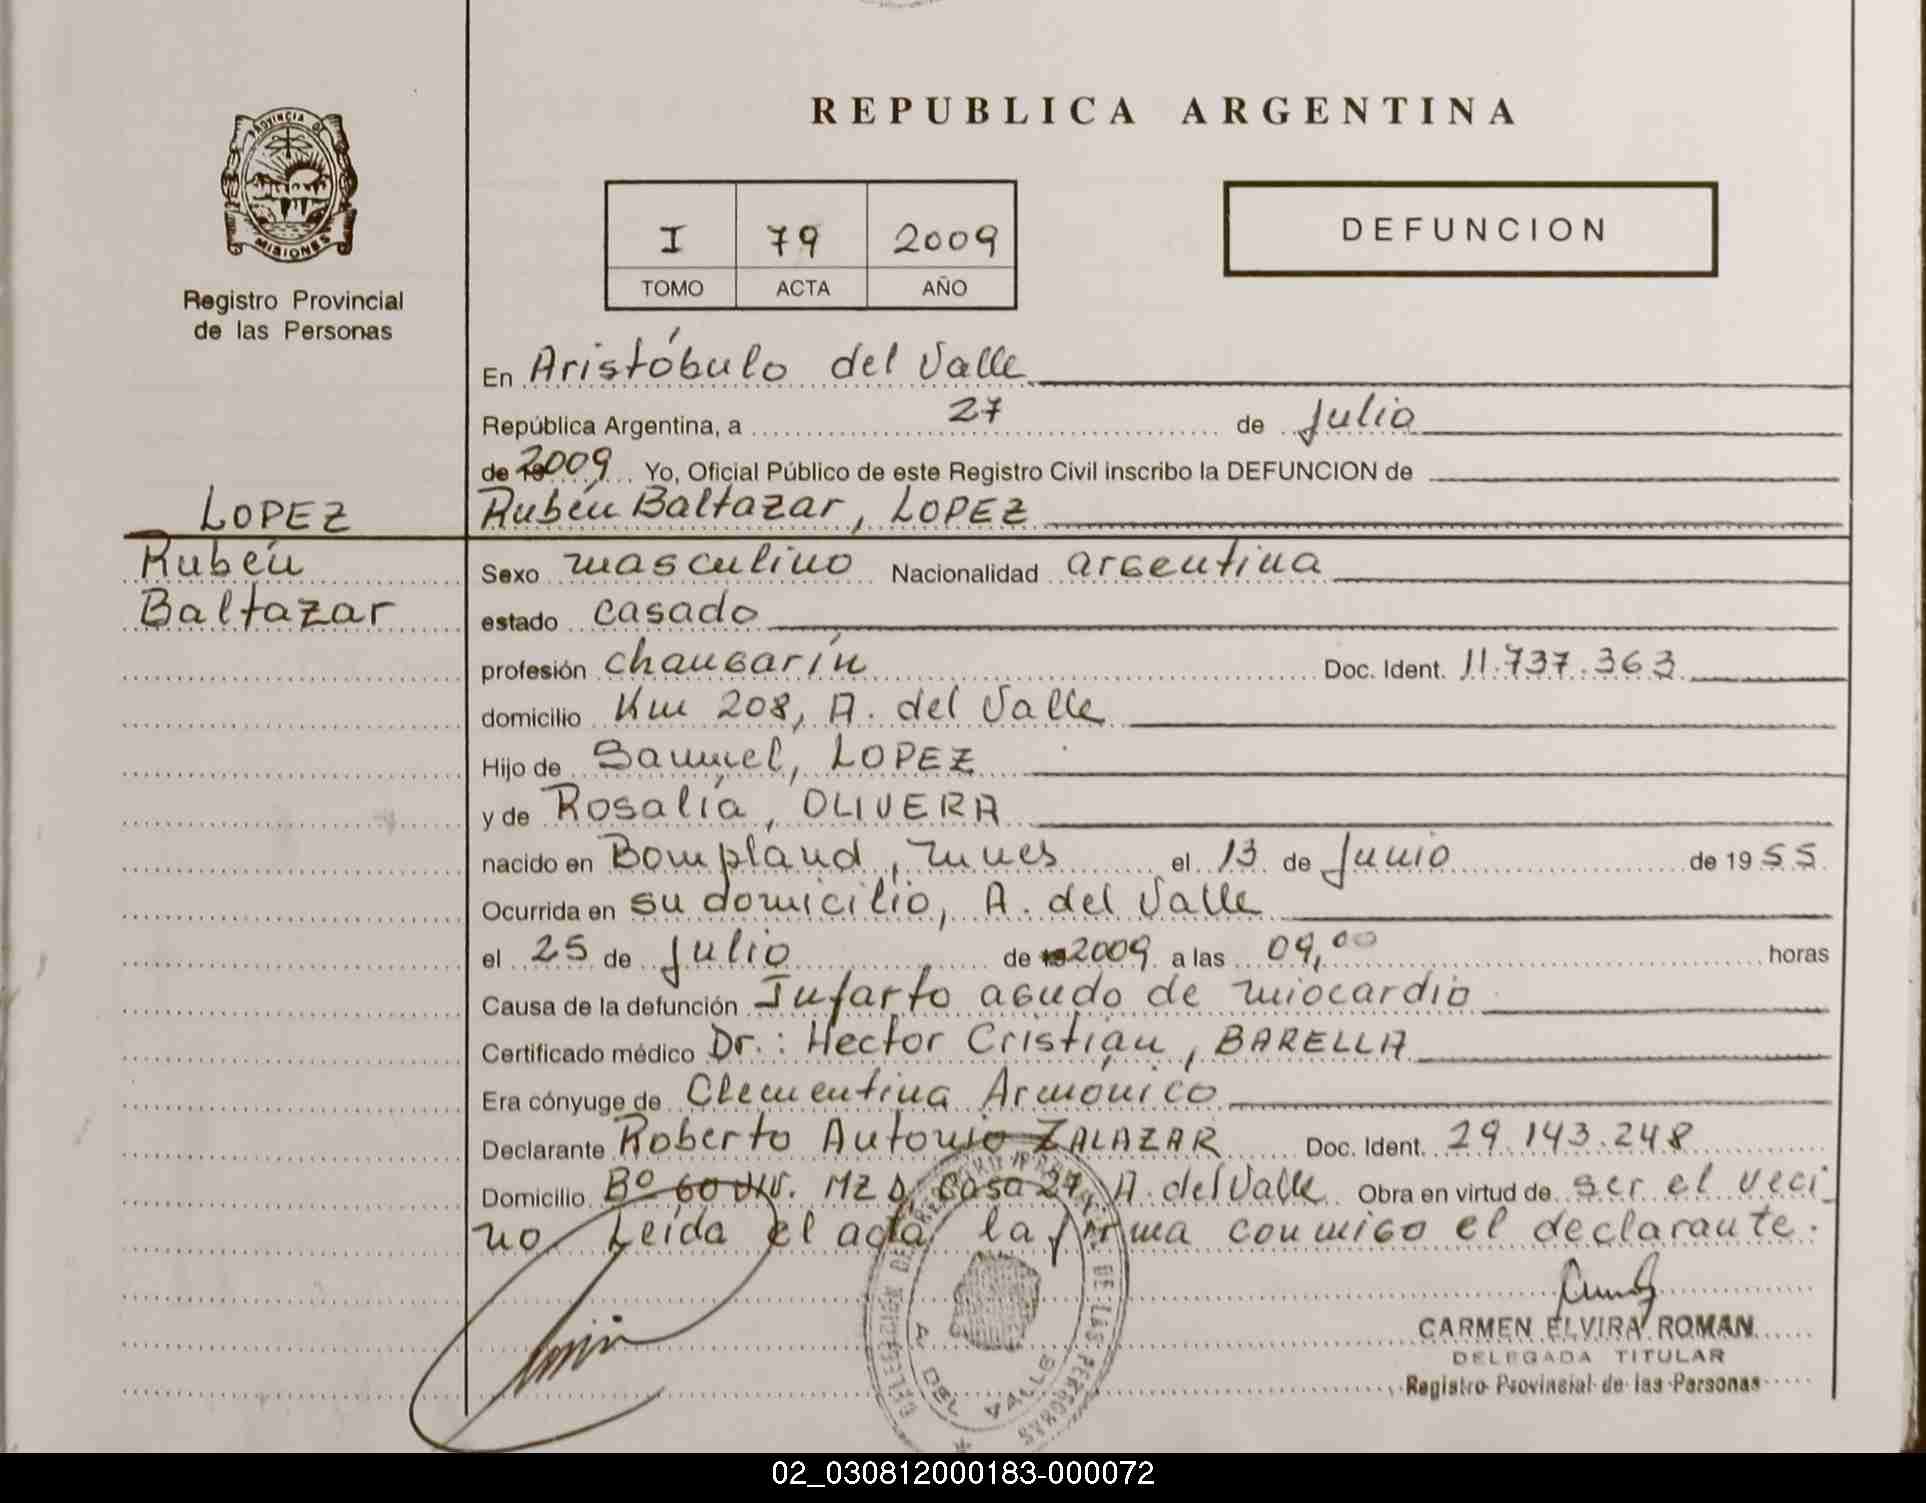 REPUBLICA ARGENTINA
PROVINCIA DE
MISIONES
Registro Provincial
de las Personas
I 79 2009
TOMO ACTA AÑO
DEFUNCION
En Aristóbulo del Valle
República Argentina, a 27 de Julio
de 2009 Yo, Oficial Público de este Registro Civil inscribo la DEFUNCION de
LOPEZ
Rubén Baltazar, LOPEZ
Rubén
Baltazar
Sexo masculino Nacionalidad argentina
estado casado
profesión changarín Doc. Ident. 11.737.363
domicilio Km 208, A. del Valle
Hijo de Samuel, LOPEZ
y de Rosalía, OLIVERA
nacido en Bompland, mnes el 13 de Junio de 1955
Ocurrida en su domicilio, A. del Valle
el 25 de Julio de 2009 a las 09,00 horas
Causa de la defunción Infarto agudo de miocardio
Certificado médico Dr.: Hector Cristian, BARELLA
Era cónyuge de Clementina Armonico
Declarante Roberto Antonio ZALAZAR Doc. Ident. 29.143.248
Domicilio Bº 60 viv. Mz D, Casa 27, A. del Valle Obra en virtud de ser el veci
no. Leída el acta, la firma conmigo el declarante.
DELEGACION DE LAS PERSONAS
A. DEL VALLE
CARMEN ELVIRA ROMAN
DELEGADA TITULAR
Registro Provincial de las Personas
02_030812000183-000072